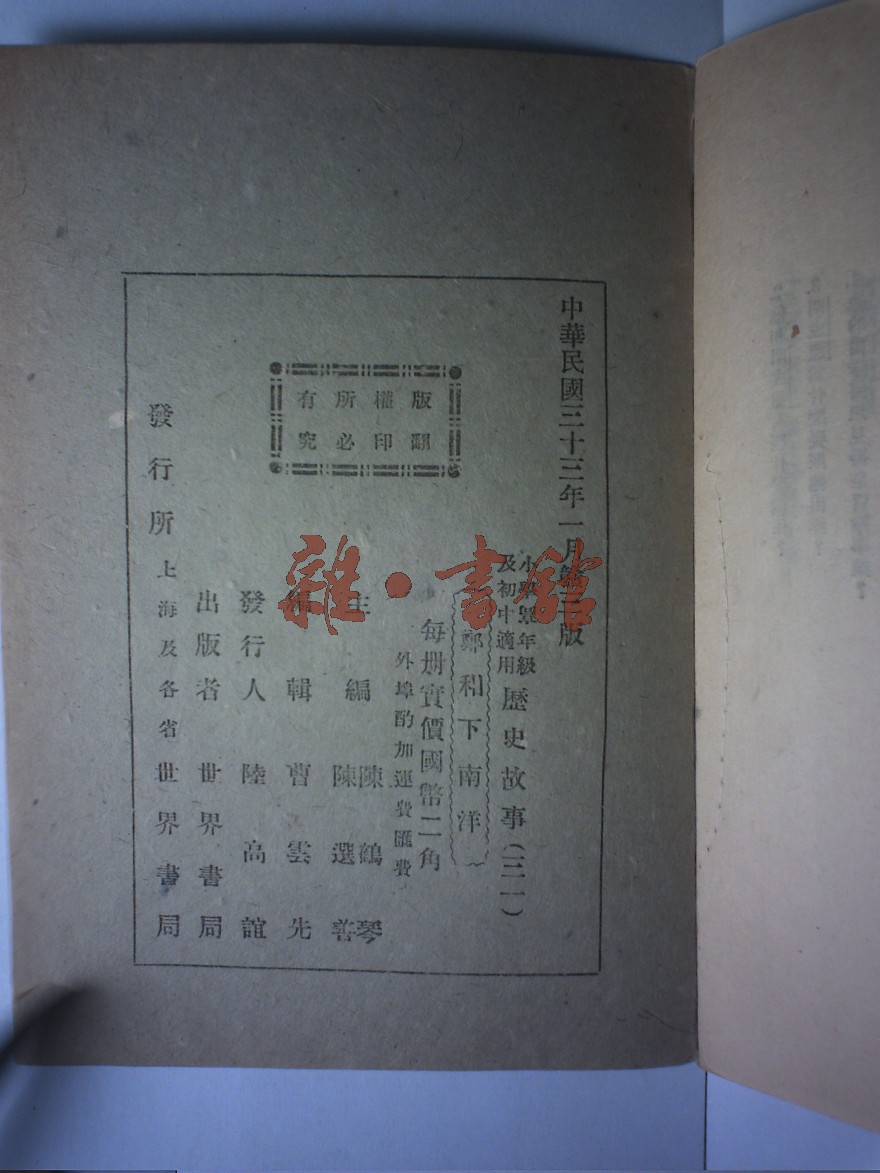 中華民國三十三年一月第三版
小學高年級
及初中適用
歷史故事(三一)
鄭和下南洋
每册實價國幣二角
外埠酌加運費匯費
主編 陳鶴琴
陳選善
編輯 曹雲先
發行人 陸高誼
出版者 世界書局
發行所 上海及各省世界書局
版權所有
翻印必究
雜·書館